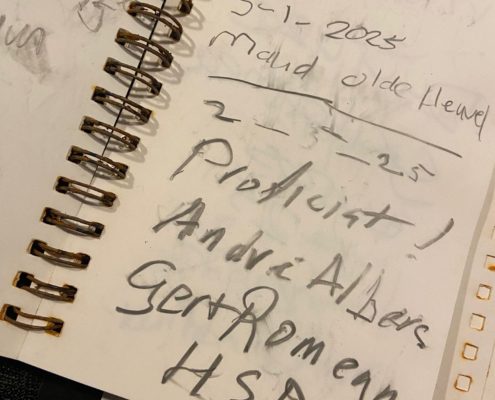 5-1-2025
Maud olde Heuvel
2-5-25
Proficiat!
André Albers
Gert Romean
HSA